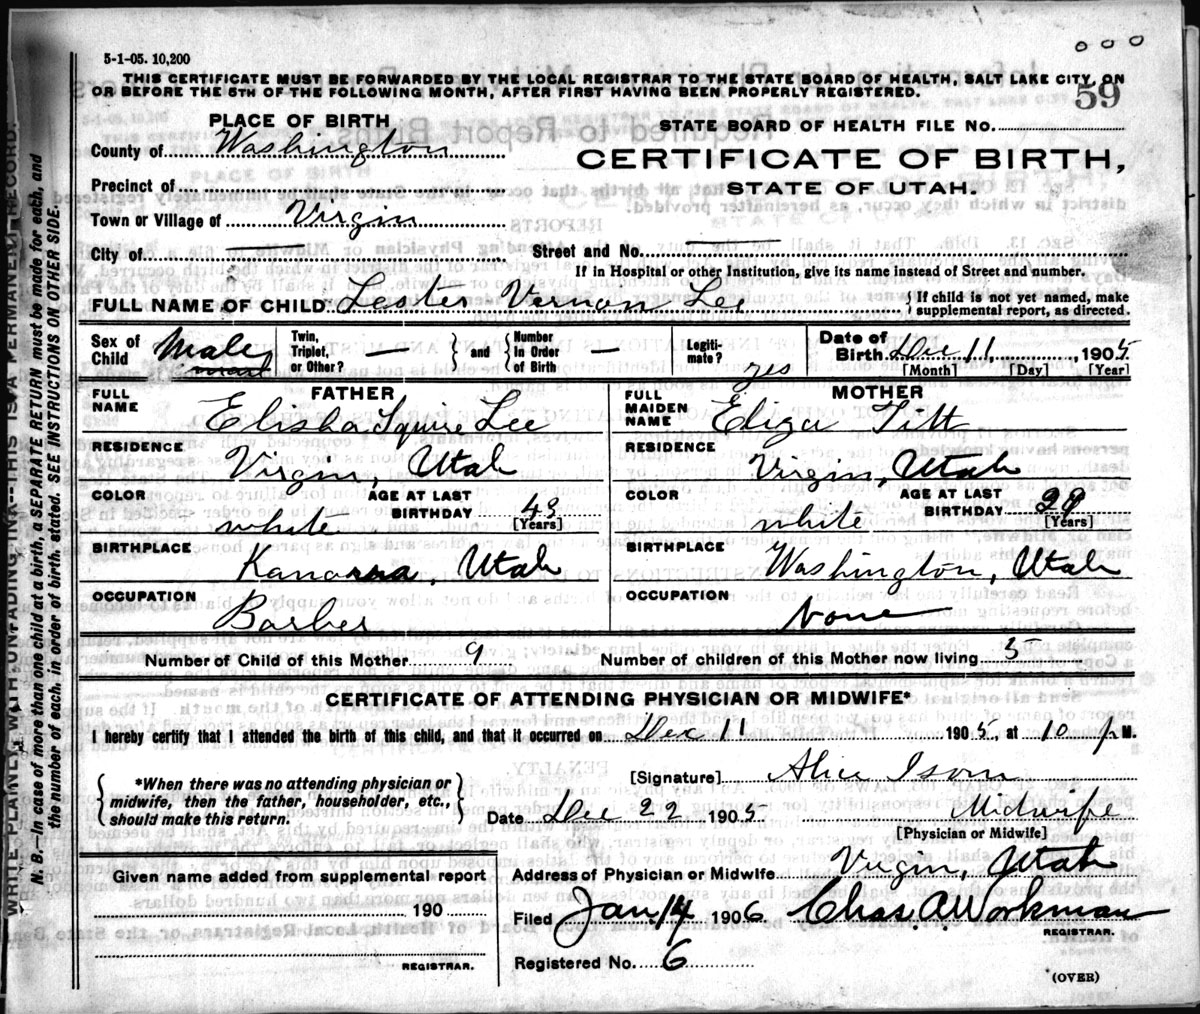 5-1-05. 10,200
THIS CERTIFICATE MUST BE FORWARDED BY THE LOCAL REGISTRAR TO THE STATE BOARD OF HEALTH, SALT LAKE CITY, ON
OR BEFORE THE 5TH OF THE FOLLOWING MONTH, AFTER FIRST HAVING BEEN PROPERLY REGISTERED.
59
PLACE OF BIRTH
STATE BOARD OF HEALTH FILE No.
County of Washington
CERTIFICATE OF BIRTH,
STATE OF UTAH.
Precinct of
Town or Village of Virgin
City of Street and No.
If in Hospital or other Institution, give its name instead of Street and number.
FULL NAME OF CHILD Lester Vernon Lee { If child is not yet named, make supplemental report, as directed.
Sex of Child Male Twin, Triplet, or Other? — } and { Number in Order of Birth — Legiti- mate? yes Date of Birth Dec 11, 1905
[Month] [Day] [Year]
FATHER MOTHER
FULL NAME Elisha Squire Lee FULL MAIDEN NAME Eliza Titt
RESIDENCE Virgin, Utah RESIDENCE Virgin, Utah
COLOR white AGE AT LAST BIRTHDAY 43 [Years] COLOR white AGE AT LAST BIRTHDAY 29 [Years]
BIRTHPLACE Kanarra, Utah BIRTHPLACE Washington, Utah
OCCUPATION Barber OCCUPATION None
Number of Child of this Mother 9 Number of children of this Mother now living 5
CERTIFICATE OF ATTENDING PHYSICIAN OR MIDWIFE*
I hereby certify that I attended the birth of this child, and that it occurred on Dec 11 1905, at 10 P M.
{ *When there was no attending physician or midwife, then the father, householder, etc., should make this return. }
[Signature] Alice Isom
Date Dec 22 1905 Midwife
[Physician or Midwife]
Given name added from supplemental report
190
REGISTRAR.
Address of Physician or Midwife Virgin, Utah
Filed Jan 14 1906 Chas. A. Workman
REGISTRAR.
Registered No. 6
(OVER)
WRITE PLAINLY WITH UNFADING INK—THIS IS A PERMANENT RECORD.
N. B.—In case of more than one child at a birth, a SEPARATE RETURN must be made for each, and
the number of each, in order of birth, stated. SEE INSTRUCTIONS ON OTHER SIDE.